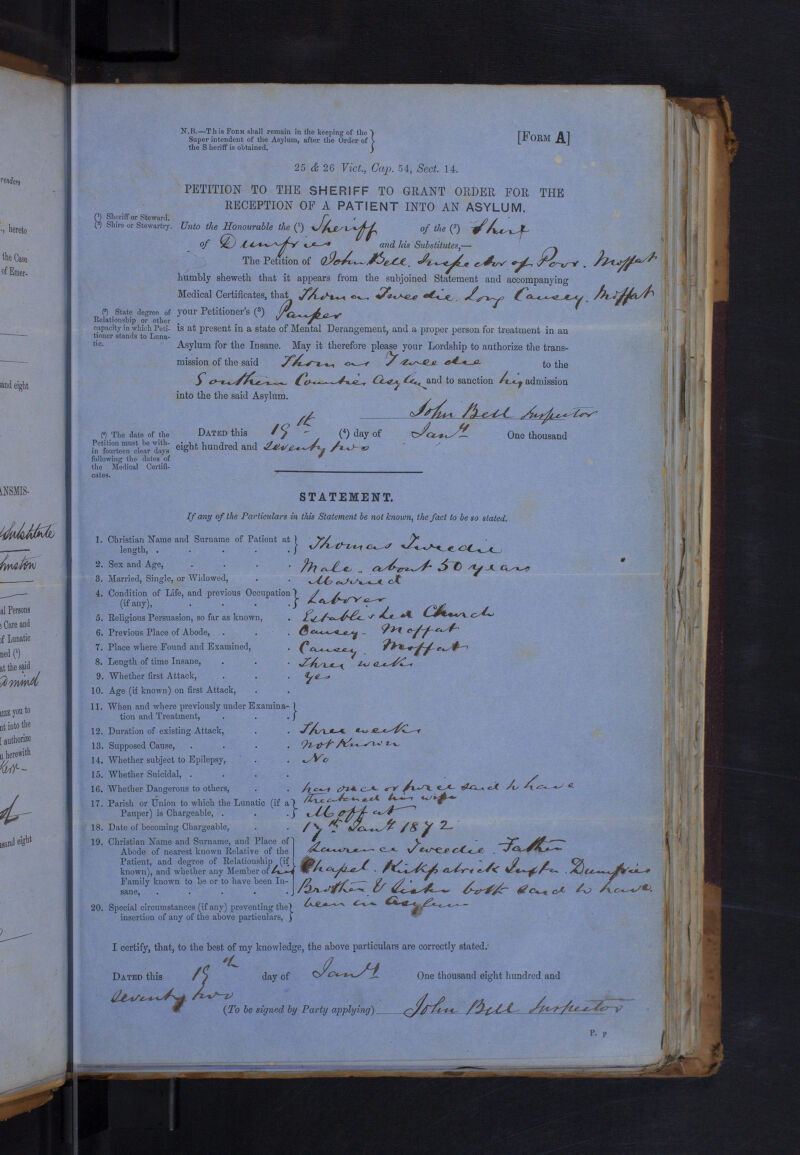 N.B.—This FORM shall remain in the keeping of the
Super intendent of the Asylum, after the Order of
the S heriff is obtained.
[FORM A]
25 & 26 Vict., Cap. 54, Sect. 14.
PETITION TO THE SHERIFF TO GRANT ORDER FOR THE
RECEPTION OF A PATIENT INTO AN ASYLUM.
(¹) Sheriff or Steward.
(²) Shire or Stewartry.
Unto the Honourable the (¹) Sheriff of the (²) Shire
of Dumfries and his Substitutes,—
The Petition of John Bell. Inspector of Poor. Moffat
humbly sheweth that it appears from the subjoined Statement and accompanying
Medical Certificates, that Thomas Tweedie. Long Causey. Moffat
(³) State degree of
Relationship or other
capacity in which Peti-
tioner stands to Luna-
tic.
your Petitioner's (³) Pauper
is at present in a state of Mental Derangement, and a proper person for treatment in an
Asylum for the Insane. May it therefore please your Lordship to authorize the trans-
mission of the said Thomas Tweedie to the
Southern Counties Asylum and to sanction his admission
into the the said Asylum.
John Bell Inspector
(⁴) The date of the
Petition must be with-
in fourteen clear days
following the dates of
the Medical Certifi-
cates.
DATED this 19th (⁴) day of Jany One thousand
eight hundred and seventy two
STATEMENT.
If any of the Particulars in this Statement be not known, the fact to be so stated.
1. Christian Name and Surname of Patient at
length, . Thomas Tweedie
2. Sex and Age, Male. about 50 years
3. Married, Single, or Widowed, Married
4. Condition of Life, and previous Occupation
(if any), Laborer
5. Religious Persuasion, so far as known, Established Church
6. Previous Place of Abode, Causey - Moffat
7. Place where Found and Examined, Causey. Moffat
8. Length of time Insane, Three weeks
9. Whether first Attack, Yes
10. Age (if known) on first Attack,
11. When and where previously under Examina-
tion and Treatment,
12. Duration of existing Attack, Three weeks
13. Supposed Cause, not Known
14. Whether subject to Epilepsy, No
15. Whether Suicidal, .
16. Whether Dangerous to others, has once or twice said to have
threatened his wife
17. Parish or Union to which the Lunatic (if a
Pauper) is Chargeable, . Moffat
18. Date of becoming Chargeable, 17th Jany 1872
19. Christian Name and Surname, and Place of
Abode of nearest known Relative of the
Patient, and degree of Relationship (if
known), and whether any Member of his
Family known to be or to have been In-
sane,
Lawrence Tweedie. Father
Chapel. Kirkpatrick Juxta. Dumfries
Brother & Sister both said to have
been in Asylum
20. Special circumstances (if any) preventing the
insertion of any of the above particulars,
I certify, that, to the best of my knowledge, the above particulars are correctly stated.
DATED this 19th day of Jany One thousand eight hundred and
seventy two
(To be signed by Party applying) John Bell Inspector
P. P
renders
., hereto
the Case
of Emer-
and eight
ANSMIS-
Substitute
al Persons
e Care and
of Lunatic
ned (¹)
at the said
you to
nt into the
authorize
n herewith
sand eight